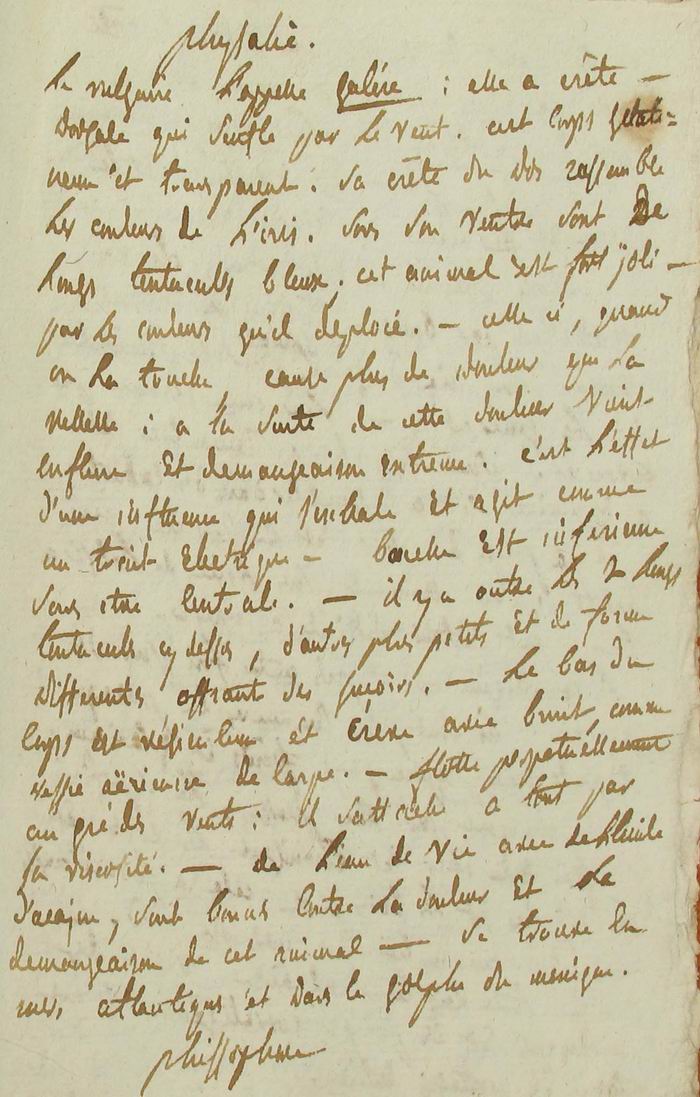 physalie.
le vulgaire l'appelle galére : elle a crête —
dorsale qui s'enfle par le vent. est corps gelati=
neux et transparent. sa crête du dos rassemble
les couleurs de l'iris. sous son ventre sont de
longs tentacules bleus, cet animal est fort joli —
par les couleurs qu'il deploié. — celle ci, quand
on la touche, cause plus de douleur que la
vellelle : a la suite de cette douleur vient
enflure et demangeaison extreme. c'est l'effet
d'une influence qui s'exhale et agit comme
un trait electrique — bouche est inferieure
sans etre centrale. — il y a outre les longs
tentacules cy dessus, d'autres plus petits et de forme
differents offrant des suçoirs. — le bas du
corps est vésiculeux et créve avec bruit, comme
vessie aërienne de carpe. — flotte perpetuellement
au gré des vents : il s'attache a tout par
sa viscosité. — de l'eau de vie avec de l'huile
d'acajou, sont bonnes contre la douleur et la
demangeaison de cet animal — se trouve en
mers atlantiques et dans le golphe du mexique.